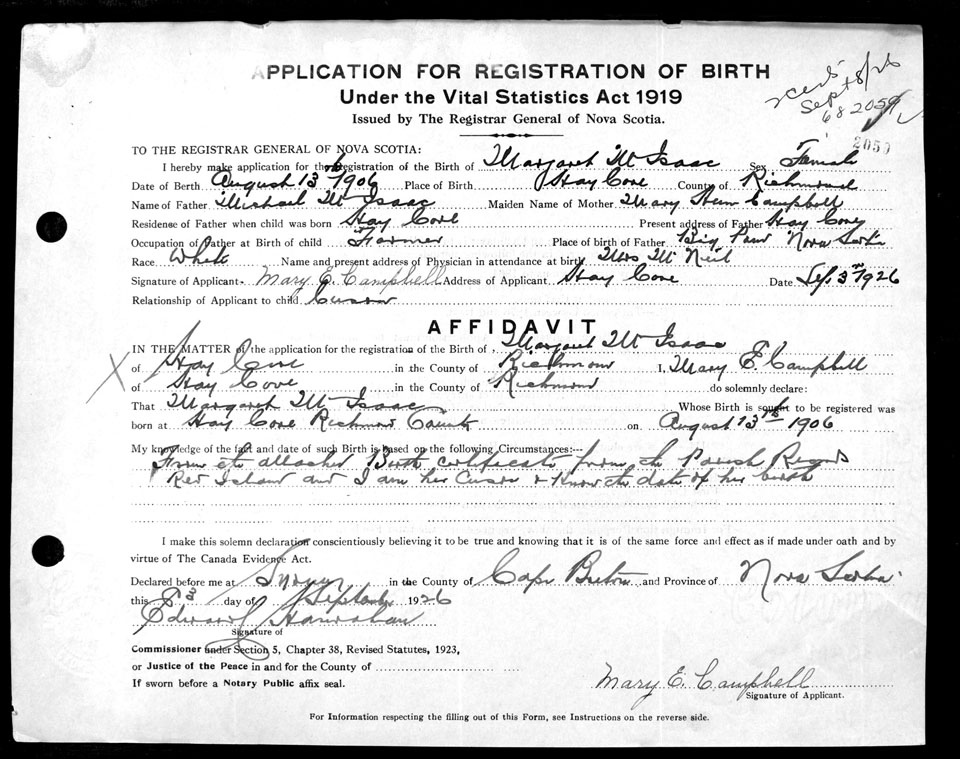 APPLICATION FOR REGISTRATION OF BIRTH
Under the Vital Statistics Act 1919
Issued by The Registrar General of Nova Scotia.
Sept 8/26
68 2059
2059
TO THE REGISTRAR GENERAL OF NOVA SCOTIA:
I hereby make application for the Registration of the Birth of Margaret McIsaac Sex Female
Date of Birth August 13th 1906 Place of Birth Hay Cove County of Richmond
Name of Father Michael McIsaac Maiden Name of Mother Mary Ann Campbell
Residense of Father when child was born Hay Cove Present address of Father Hay Cove
Occupation of Father at Birth of child Farmer Place of birth of Father Big Pond Nova Scotia
Race White Name and present address of Physician in attendance at birth Mrs McNeil
Signature of Applicant Mary E. Campbell Address of Applicant Hay Cove Date Sep 3rd 1926
Relationship of Applicant to child Cusson
AFFIDAVIT
IN THE MATTER of the application for the registration of the Birth of Margaret McIsaac
of Hay Cove in the County of Richmond I, Mary E. Campbell
of Hay Cove in the County of Richmond do solemnly declare:
That Margaret McIsaac Whose Birth is sought to be registered was
born at Hay Cove Richmond County on August 13th 1906
My knowledge of the fact and date of such Birth is based on the following Circumstances:—
From the attached Birth certificate from the Parish Record
Red Island and I am her Cusson & Know the date of her birth
I make this solemn declaration conscientiously believing it to be true and knowing that it is of the same force and effect as if made under oath and by
virtue of The Canada Evidence Act.
Declared before me at in the County of Cape Breton and Province of Nova Scotia
this day of September 1926
Edward Hanrahan
Signature of
Commissioner under Section 5, Chapter 38, Revised Statutes, 1923,
or Justice of the Peace in and for the County of
If sworn before a Notary Public affix seal.
Mary E. Campbell
Signature of Applicant.
For Information respecting the filling out of this Form, see Instructions on the reverse side.